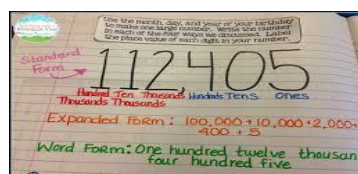 Use the month, day, and year of your birthday
to make one large number. Write the number
in each of the four ways we discussed. Label
the place value of each digit in your number.
Standard
Form
112,405
Hundred Ten Thousands Hundreds Tens Ones
Thousands Thousands
Expanded Form: 100,000 + 10,000 + 2,000 +
400 + 5
Word Form: One hundred twelve thousan
four hundred five